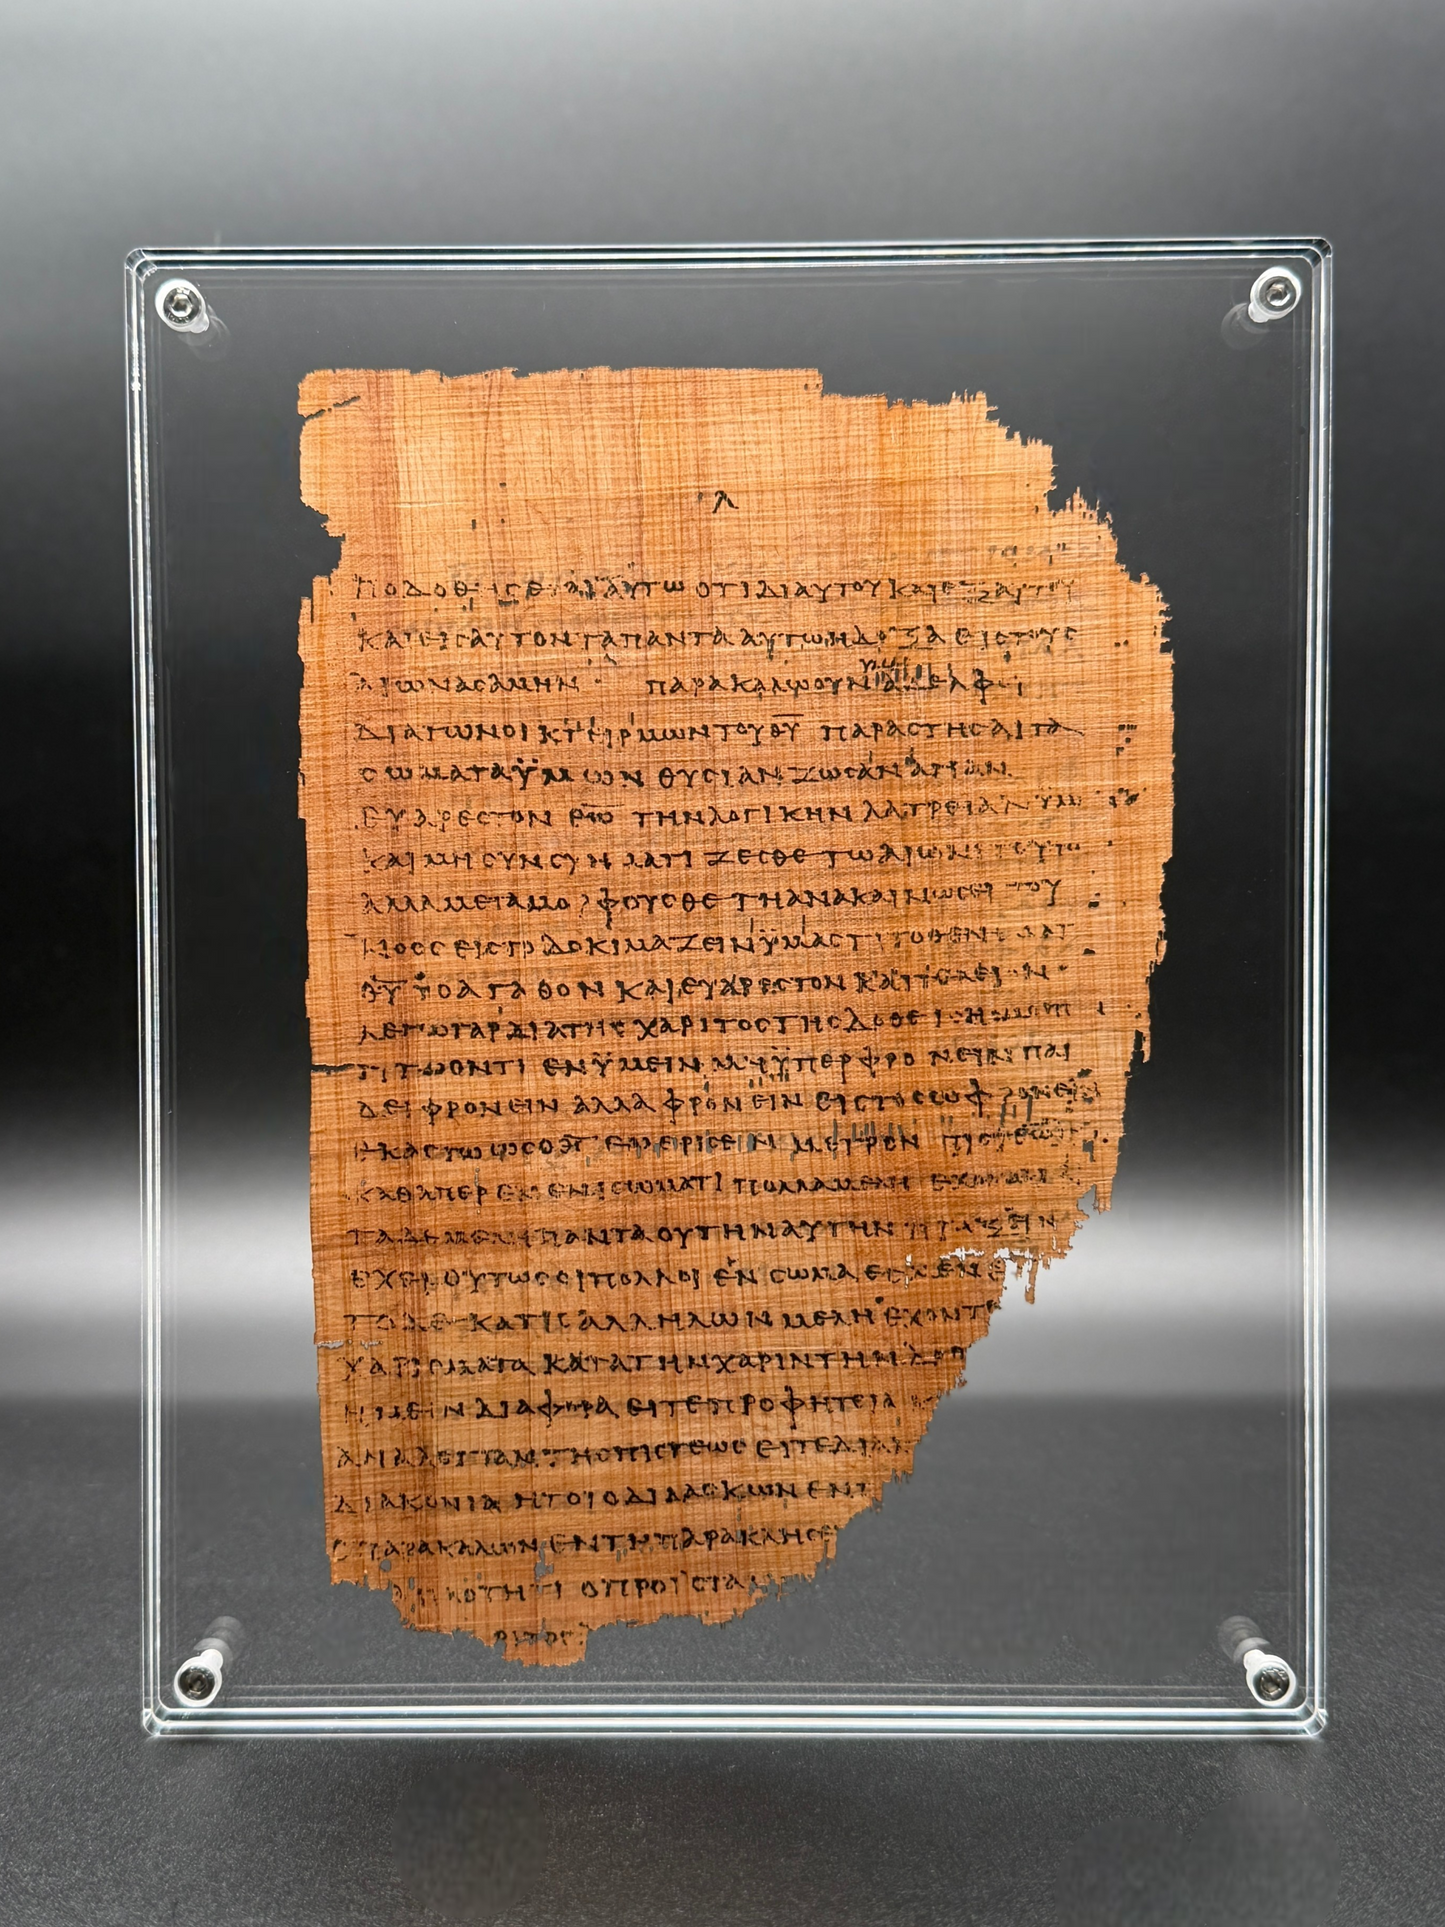 Λ
ΑΥΤΩ ΟΤΙ ΔΙ ΑΥΤΟΥ ΚΑΙ ΕΞ ΑΥΤΟΥ
ΚΑΙ ΕΙΣ ΑΥΤΟΝ ΤΑ ΠΑΝΤΑ ΑΥΤΩ Η ΔΟΞΑ ΕΙΣ ΤΟΥΣ
ΑΙΩΝΑΣ ΑΜΗΝ ΠΑΡΑΚΑΛΩ ΟΥΝ
ΔΙΑ ΤΩΝ ΟΙΚΤΙΡΜΩΝ ΤΟΥ ΘΥ ΠΑΡΑΣΤΗΣΑΙ ΤΑ
ΣΩΜΑΤΑ ΫΜΩΝ ΘΥΣΙΑΝ ΖΩΣΑΝ ΑΓΙΑΝ
ΕΥΑΡΕΣΤΟΝ ΤΗΝ ΛΟΓΙΚΗΝ ΛΑΤΡΕΙΑΝ ΫΜΩ
ΚΑΙ ΜΗ ΣΥΝΣΧΗΜΑΤΙΖΕΣΘΕ ΤΩ ΑΙΩΝΙ ΤΟΥΤΩ
ΑΛΛΑ ΜΕΤΑΜΟΡΦΟΥΣΘΕ ΤΗ ΑΝΑΚΑΙΝΩΣΕΙ ΤΟΥ
ΝΟΟΣ ΕΙΣ ΤΟ ΔΟΚΙΜΑΖΕΙΝ ΫΜΑΣ ΤΙ ΤΟ ΘΕΛΗΜΑ Τ
ΘΥ ΤΟ ΑΓΑΘΟΝ ΚΑΙ ΕΥΑΡΕΣΤΟΝ ΚΑΙ ΤΕΛΕΙΟΝ
ΛΕΓΩ ΓΑΡ ΔΙΑ ΤΗΣ ΧΑΡΙΤΟΣ ΤΗΣ ΔΟΘΕΙΣΗΣ
ΤΩ ΟΝΤΙ ΕΝ ΫΜΕΙΝ ΜΗ ΫΠΕΡΦΡΟΝΕΙΝ ΠΑΡ
ΔΕΙ ΦΡΟΝΕΙΝ ΑΛΛΑ ΦΡΟΝΕΙΝ ΕΙΣ ΤΟ ΣΩΦΡΟΝΕΙΝ
ΕΚΑΣΤΩ ΩΣ Ο ΘΣ ΕΜΕΡΙΣΕΝ ΜΕΤΡΟΝ ΠΙΣΤΕΩΣ
ΚΑΘΑΠΕΡ ΕΝ ΕΝΙ ΣΩΜΑΤΙ ΠΟΛΛΑ ΜΕΛΗ ΕΧΟΜΕΝ
ΤΑ ΔΕ ΜΕΛΗ ΠΑΝΤΑ ΟΥ ΤΗΝ ΑΥΤΗΝ ΠΡΑΞΙΝ
ΕΧΕΙ ΟΥΤΩΣ ΟΙ ΠΟΛΛΟΙ ΕΝ ΣΩΜΑ ΕΣΜΕΝ Ε
ΤΟ ΔΕ ΚΑΤ ΙΣ ΑΛΛΗΛΩΝ ΜΕΛΗ ΕΧΟΝΤΕ
ΧΑΡΙΣΜΑΤΑ ΚΑΤΑ ΤΗΝ ΧΑΡΙΝ ΤΗΝ ΔΟΘ
ΗΜΕΙΝ ΔΙΑΦΟΡΑ ΕΙΤΕ ΠΡΟΦΗΤΕΙΑ
ΑΝΑΛΟΓΙΑΝ ΤΗΣ ΠΙΣΤΕΩΣ ΕΙΤΕ ΔΙΑΚ
ΔΙΑΚΟΝΙΑ ΗΤΟΙ Ο ΔΙΔΑΣΚΩΝ ΕΝ Τ
Ο ΠΑΡΑΚΑΛΩΝ ΕΝ ΤΗ ΠΑΡΑΚΛΗΣΕ
ΟΤΗΤΙ Ο ΠΡΟΙΣΤΑ